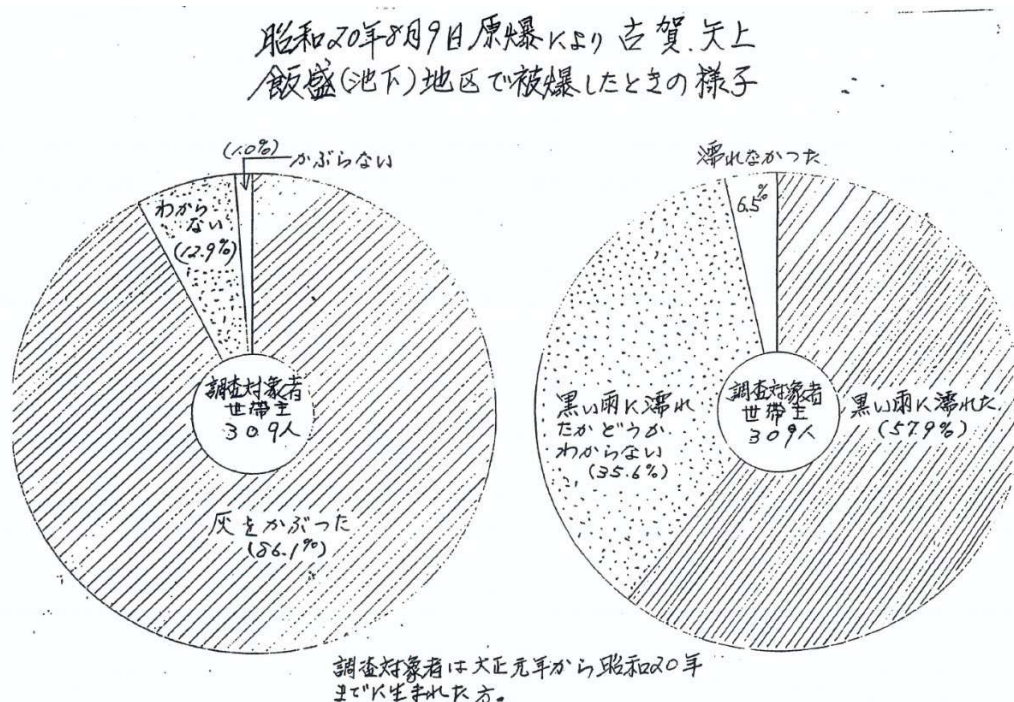 昭和20年8月9日原爆により古賀.矢上
飯盛(池下)地区で被爆したときの様子
(1.0%)
かぶらない
わから
ない
(12.9%)
調査対象者
世帯主
309人
灰をかぶった
(86.1%)
濡れなかった
6.5%
黒い雨に濡れ
たかどうか
わからない
(35.6%)
調査対象者
世帯主
309人
黒い雨に濡れた
(57.9%)
調査対象者は大正元年から昭和20年
までに生まれた方。